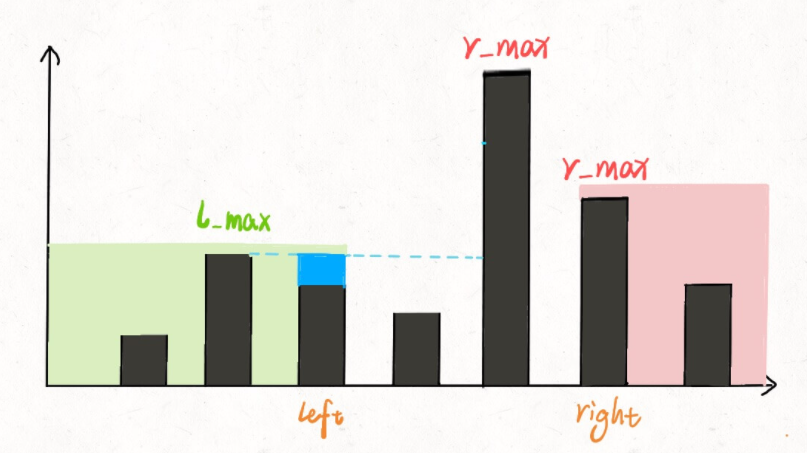 r_max
r_max
l_max
left
right